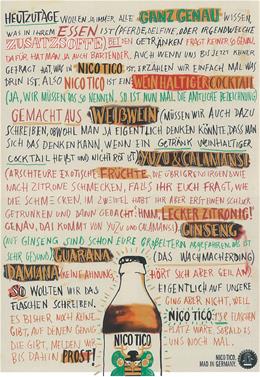 HEUTZUTAGE WOLLEN JA IMMER ALLE GANZ GENAU WISSEN,
WAS IN IHREM ESSEN IST (PFERD, DELFINE, ODER IRGENDWELCHE
ZUSATZSTOFFE) BEI DEN GETRÄNKEN FRAGT KEINER SO GENAU.
DAFÜR HAT MAN JA AUCH BARTENDER. AUCH WENN UNS BIS JETZT KEINER
GEFRAGT HAT, WAS IN NICO TICO IST, ERZÄHLEN WIR EINFACH MAL WAS
DRIN IST. ALSO NICO TICO IST EIN WEINHALTIGER COCKTAIL
(JA, WIR MÜSSEN DAS SO NENNEN. SO IST NUN MAL DIE AMTLICHE BEZEICHNUNG)
GEMACHT AUS WEIßWEIN (MÜSSEN WIR AUCH DAZU
SCHREIBEN, OBWOHL MAN JA EIGENTLICH DENKEN KÖNNTE, DASS MAN
SICH DAS DENKEN KANN, WENN EIN GETRÄNK WEINHALTIGER
COCKTAIL HEIßT UND NICHT ROT IST) YUZU & CALAMANSI
(ARSCHTEURE EXOTISCHE FRÜCHTE, DIE ÜBRIGENS IRGENDWIE
NACH ZITRONE SCHMECKEN, FALLS IHR EUCH FRAGT, WIE
DIE SCHMECKEN. IM ZWEIFEL HABT IHR ABER ERST EINEN SCHLUCK
GETRUNKEN UND DANN GEDACHT: HMM, LECKER ZITRONIG!
GENAU, DAS KOMMT VON YUZU UND CALAMANSI). GINSENG
(AUF GINSENG SIND SCHON EURE GROßELTERN ABGEFAHREN, DAS IST
SEHR GESUND) GUARANA (DAS WACHMACHERDING)
DAMIANA (KEINE AHNUNG, HÖRT SICH ABER GEIL AN)
SO WOLLTEN WIR DAS EIGENTLICH AUF UNSERE
FLASCHEN SCHREIBEN. GING ABER NICHT, WEIL
ES BISHER NOCH KEINE NICO TICO
GIBT, AUF DENEN GENUG PLATZ WÄRE. SOBALD ES
DIE GIBT, MELDEN WIR UNS NOCH MAL.
BIS DAHIN PROST!
NICO TICO
NICO TICO.
MADE IN GERMANY.